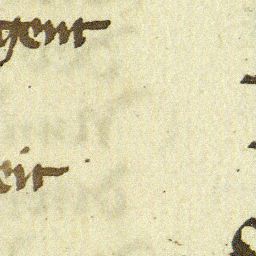 gent
eit